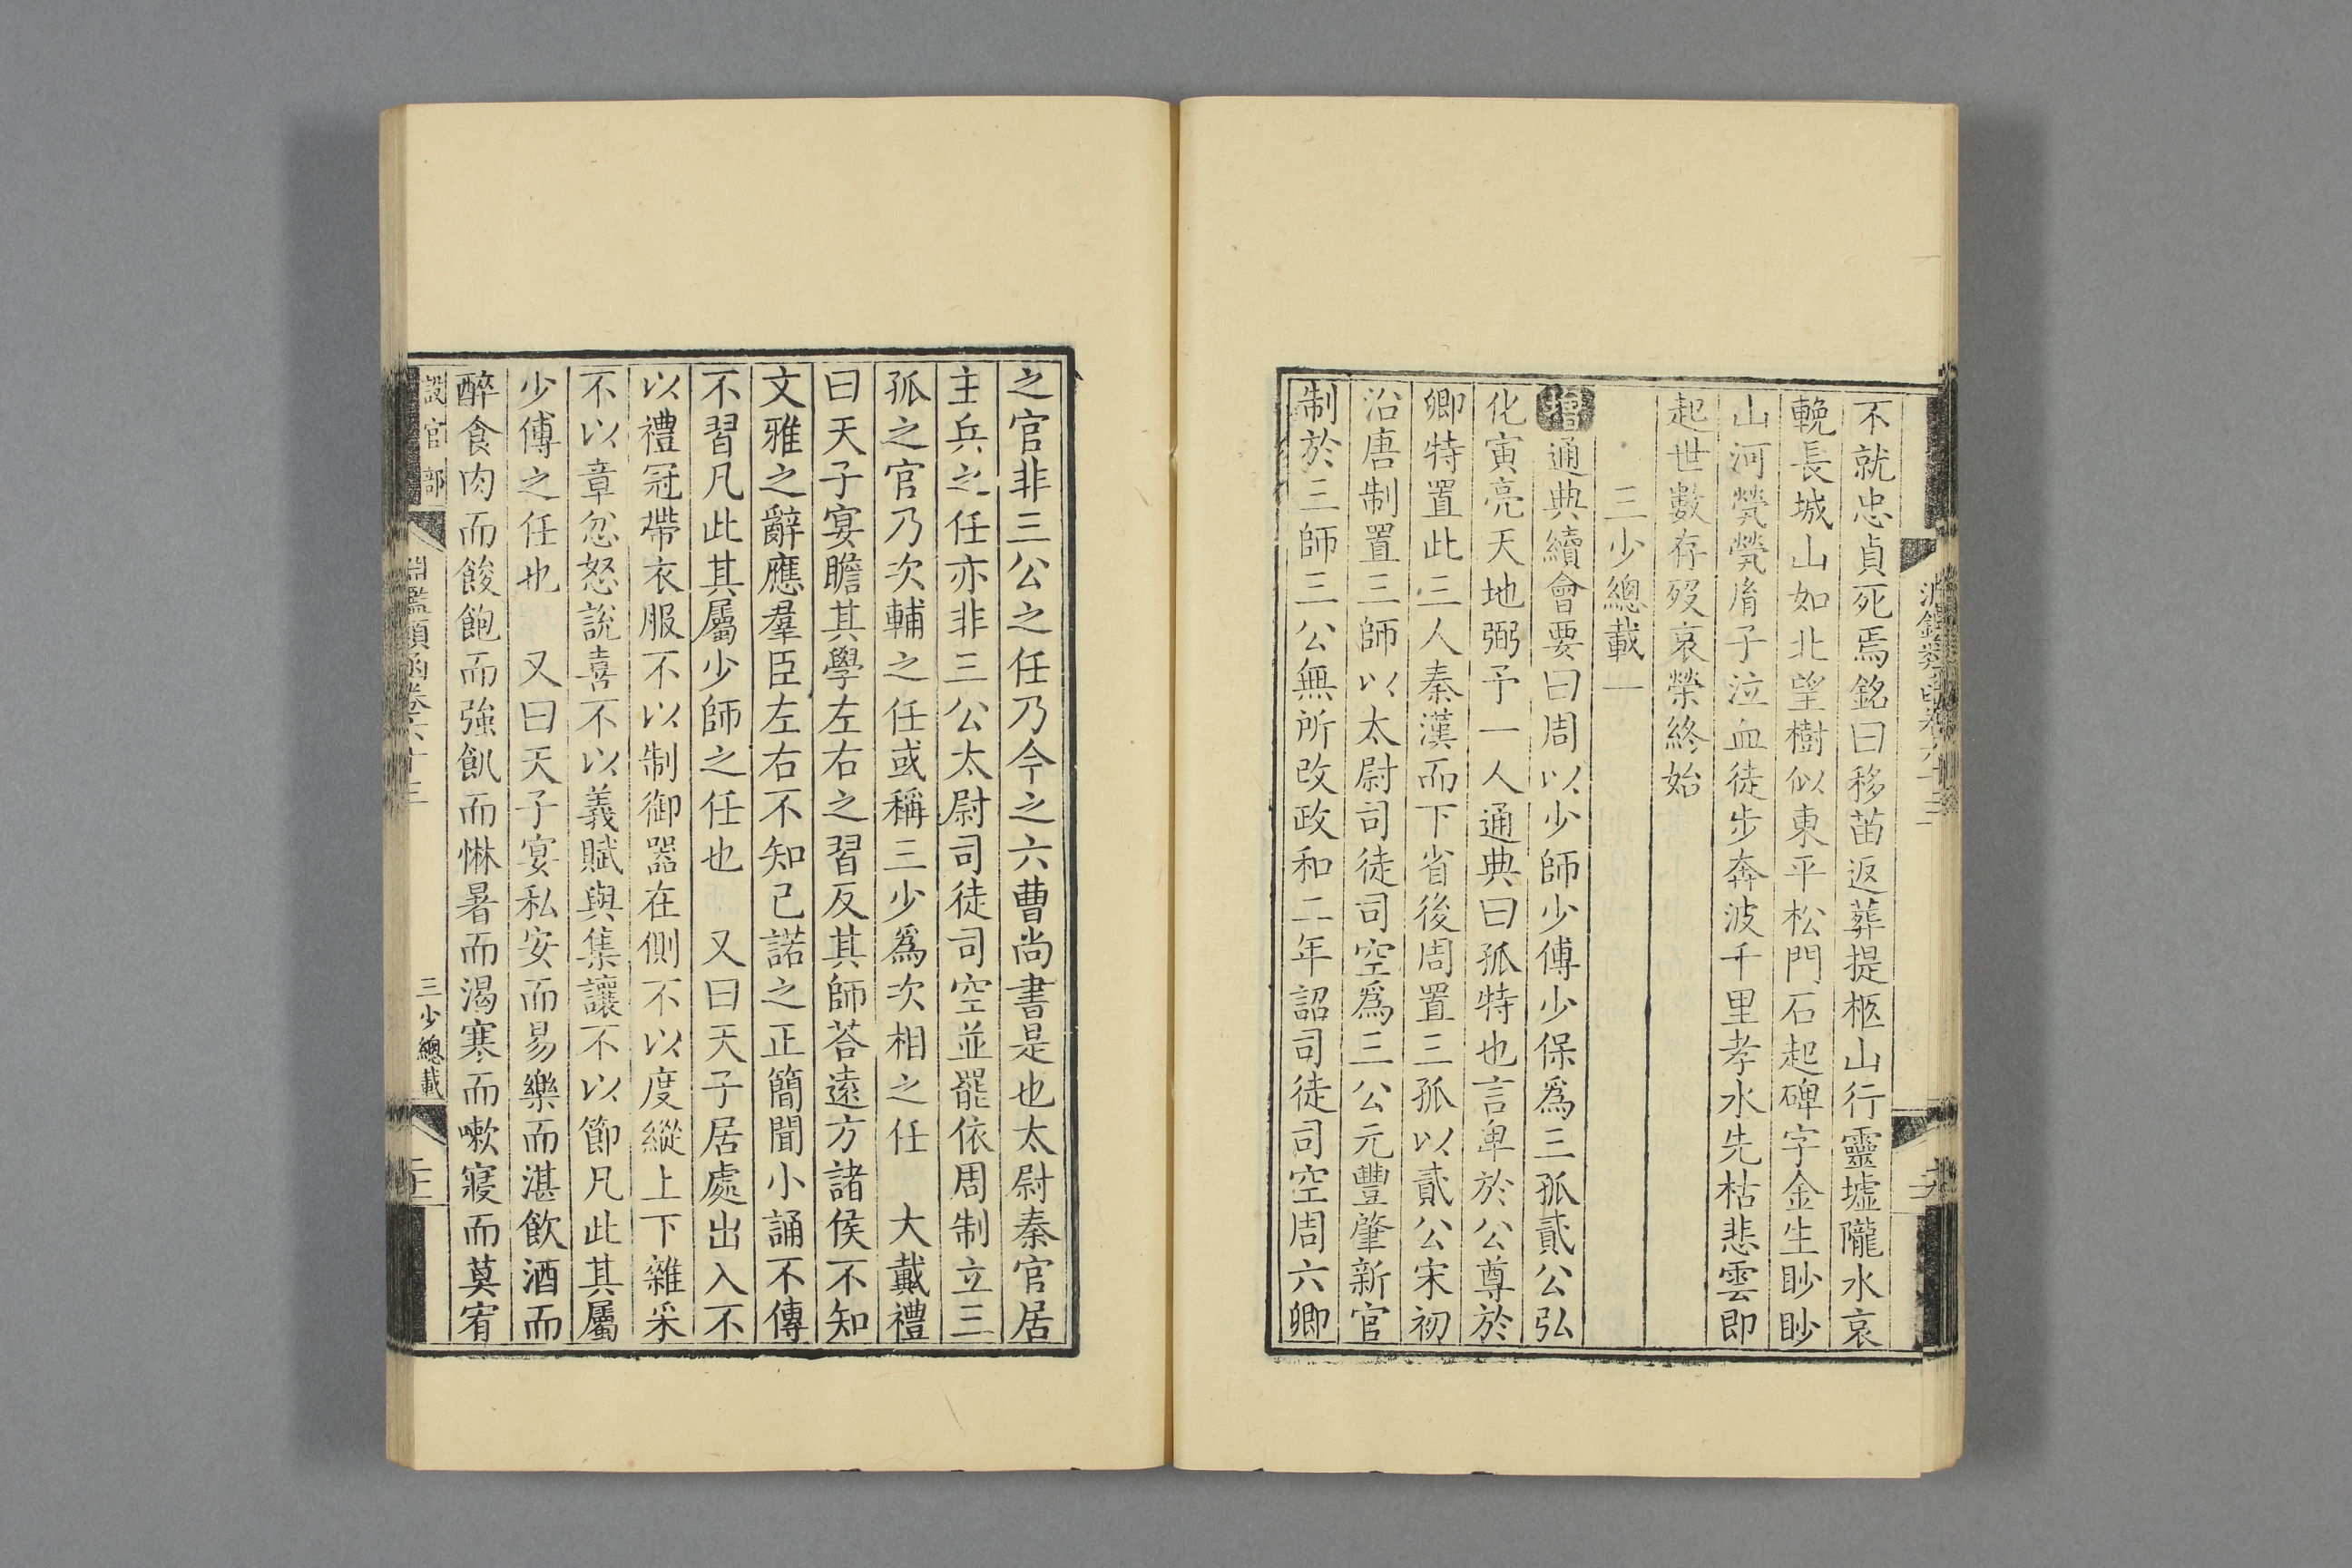 不就忠貞死焉銘曰移苗返葬提柩山行靈墟隴水哀
輓長城山如北望樹似東平松門石起碑字金生眇眇
山河煢煢胤子泣血徒步奔波千里孝水先枯悲雲即
起世數存歿哀榮終始
三少總載一
增通典續會要曰周以少師少傅少保爲三孤貳公弘
化寅亮天地弼予一人 通典曰孤特也言卑於公尊於
卿特置此三人秦漢而下省後周置三孤以貳公宋初
沿唐制置三師以太尉司徒司空爲三公元豐肇新官
制於三師三公無所改政和二年詔司徒司空周六卿
之官非三公之任乃今之六曹尚書是也太尉秦官居
主兵之任亦非三公太尉司徒司空並罷依周制立三
孤之官乃次輔之任或稱三少爲次相之任 大戴禮
曰天子宴瞻其學左右之習反其師荅遠方諸侯不知
文雅之辭應羣臣左右不知已諾之正簡聞小誦不傳
不習凡此其屬少師之任也 又曰天子居處出入不
以禮冠帶衣服不以制御器在側不以度縱上下雜采
不以章忿怒說喜不以義賦與集讓不以節凡此其屬
少傅之任也 又曰天子宴私安而易樂而湛飲酒而
醉食肉而餕飽而強飢而惏暑而渴寒而嗽寢而莫宥
設官部
淵鑑類函卷六十三
三少總載